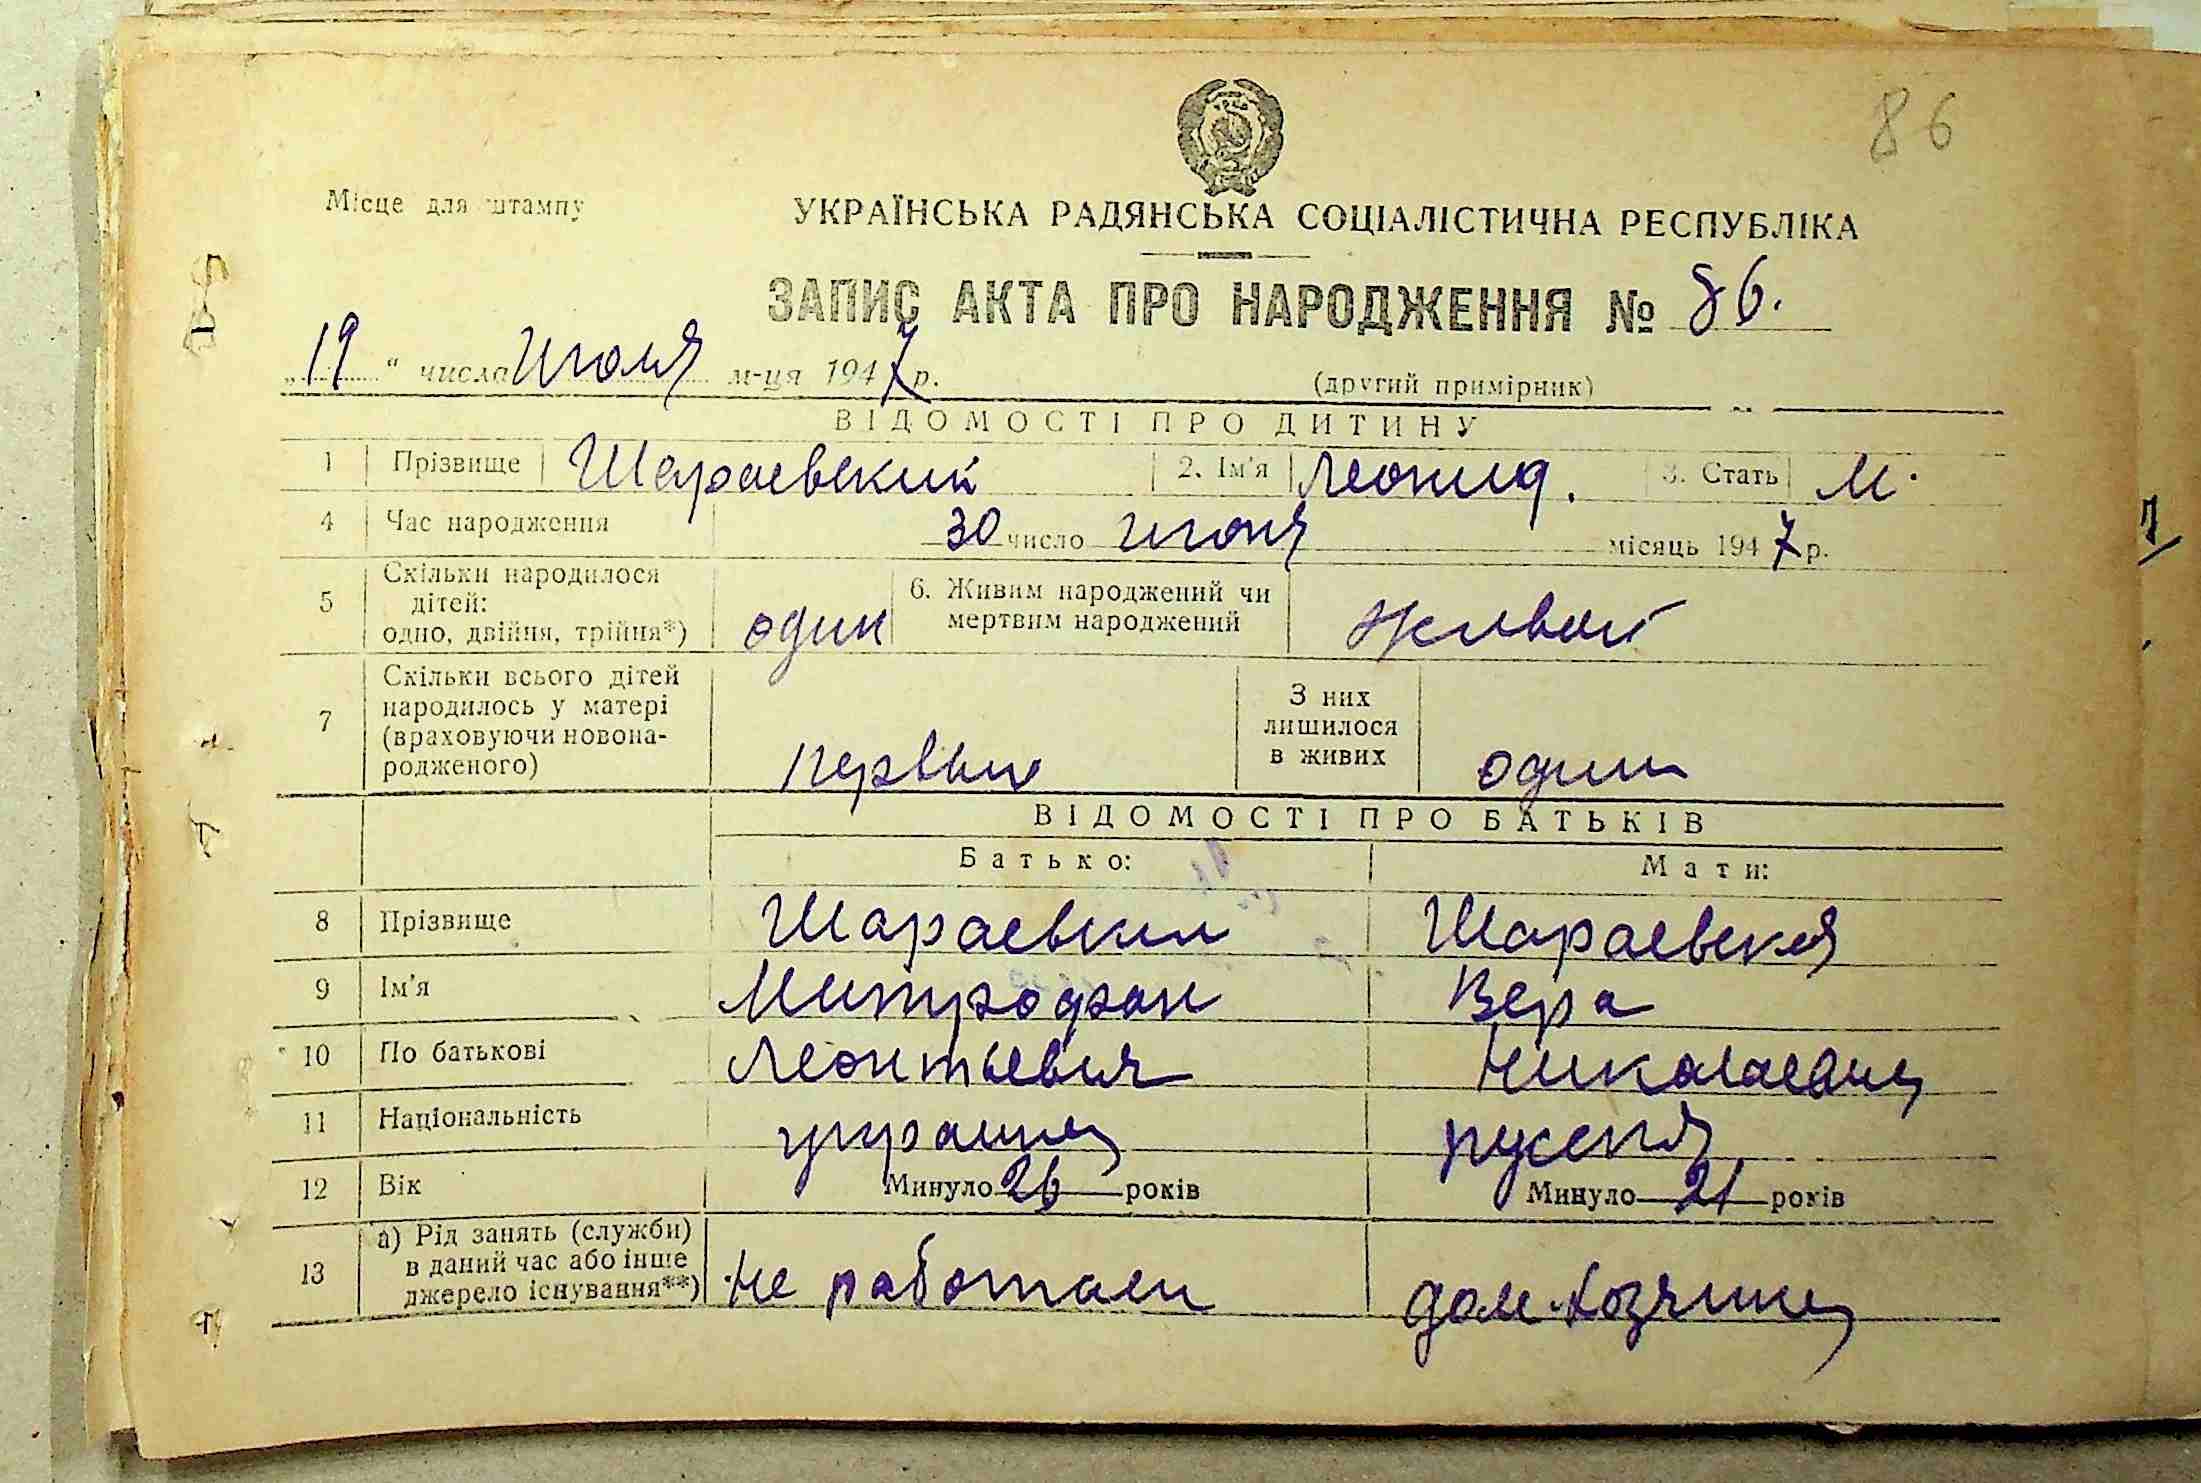 86
Місце для штампу
УКРАЇНСЬКА РАДЯНСЬКА СОЦІАЛІСТИЧНА РЕСПУБЛІКА
ЗАПИС АКТА ПРО НАРОДЖЕННЯ № 86.
„19“ числа Июля м-ця 1947 р.
(другий примірник)
ВІДОМОСТІ ПРО ДИТИНУ
1 Прізвище Шараевский 2. Ім'я Леонид. 3. Стать М.
4 Час народження 30 число Июня місяць 1947 р.
5 Скільки народилося дітей: одно, двійня, трійня*) один 6. Живим народжений чи мертвим народжений живой
7 Скільки всього дітей народилось у матері (враховуючи новонародженого) первый З них лишилося в живих один
ВІДОМОСТІ ПРО БАТЬКІВ
Батько: Мати:
8 Прізвище Шараевский Шараевская
9 Ім'я Митрофан Вера
10 По батькові Леонтьевич Николаевна
11 Національність украинец русская
12 Вік Минуло 26 років Минуло 21 років
13 а) Рід занять (служби) в даний час або інше джерело існування**) не работает дом. хозяйка